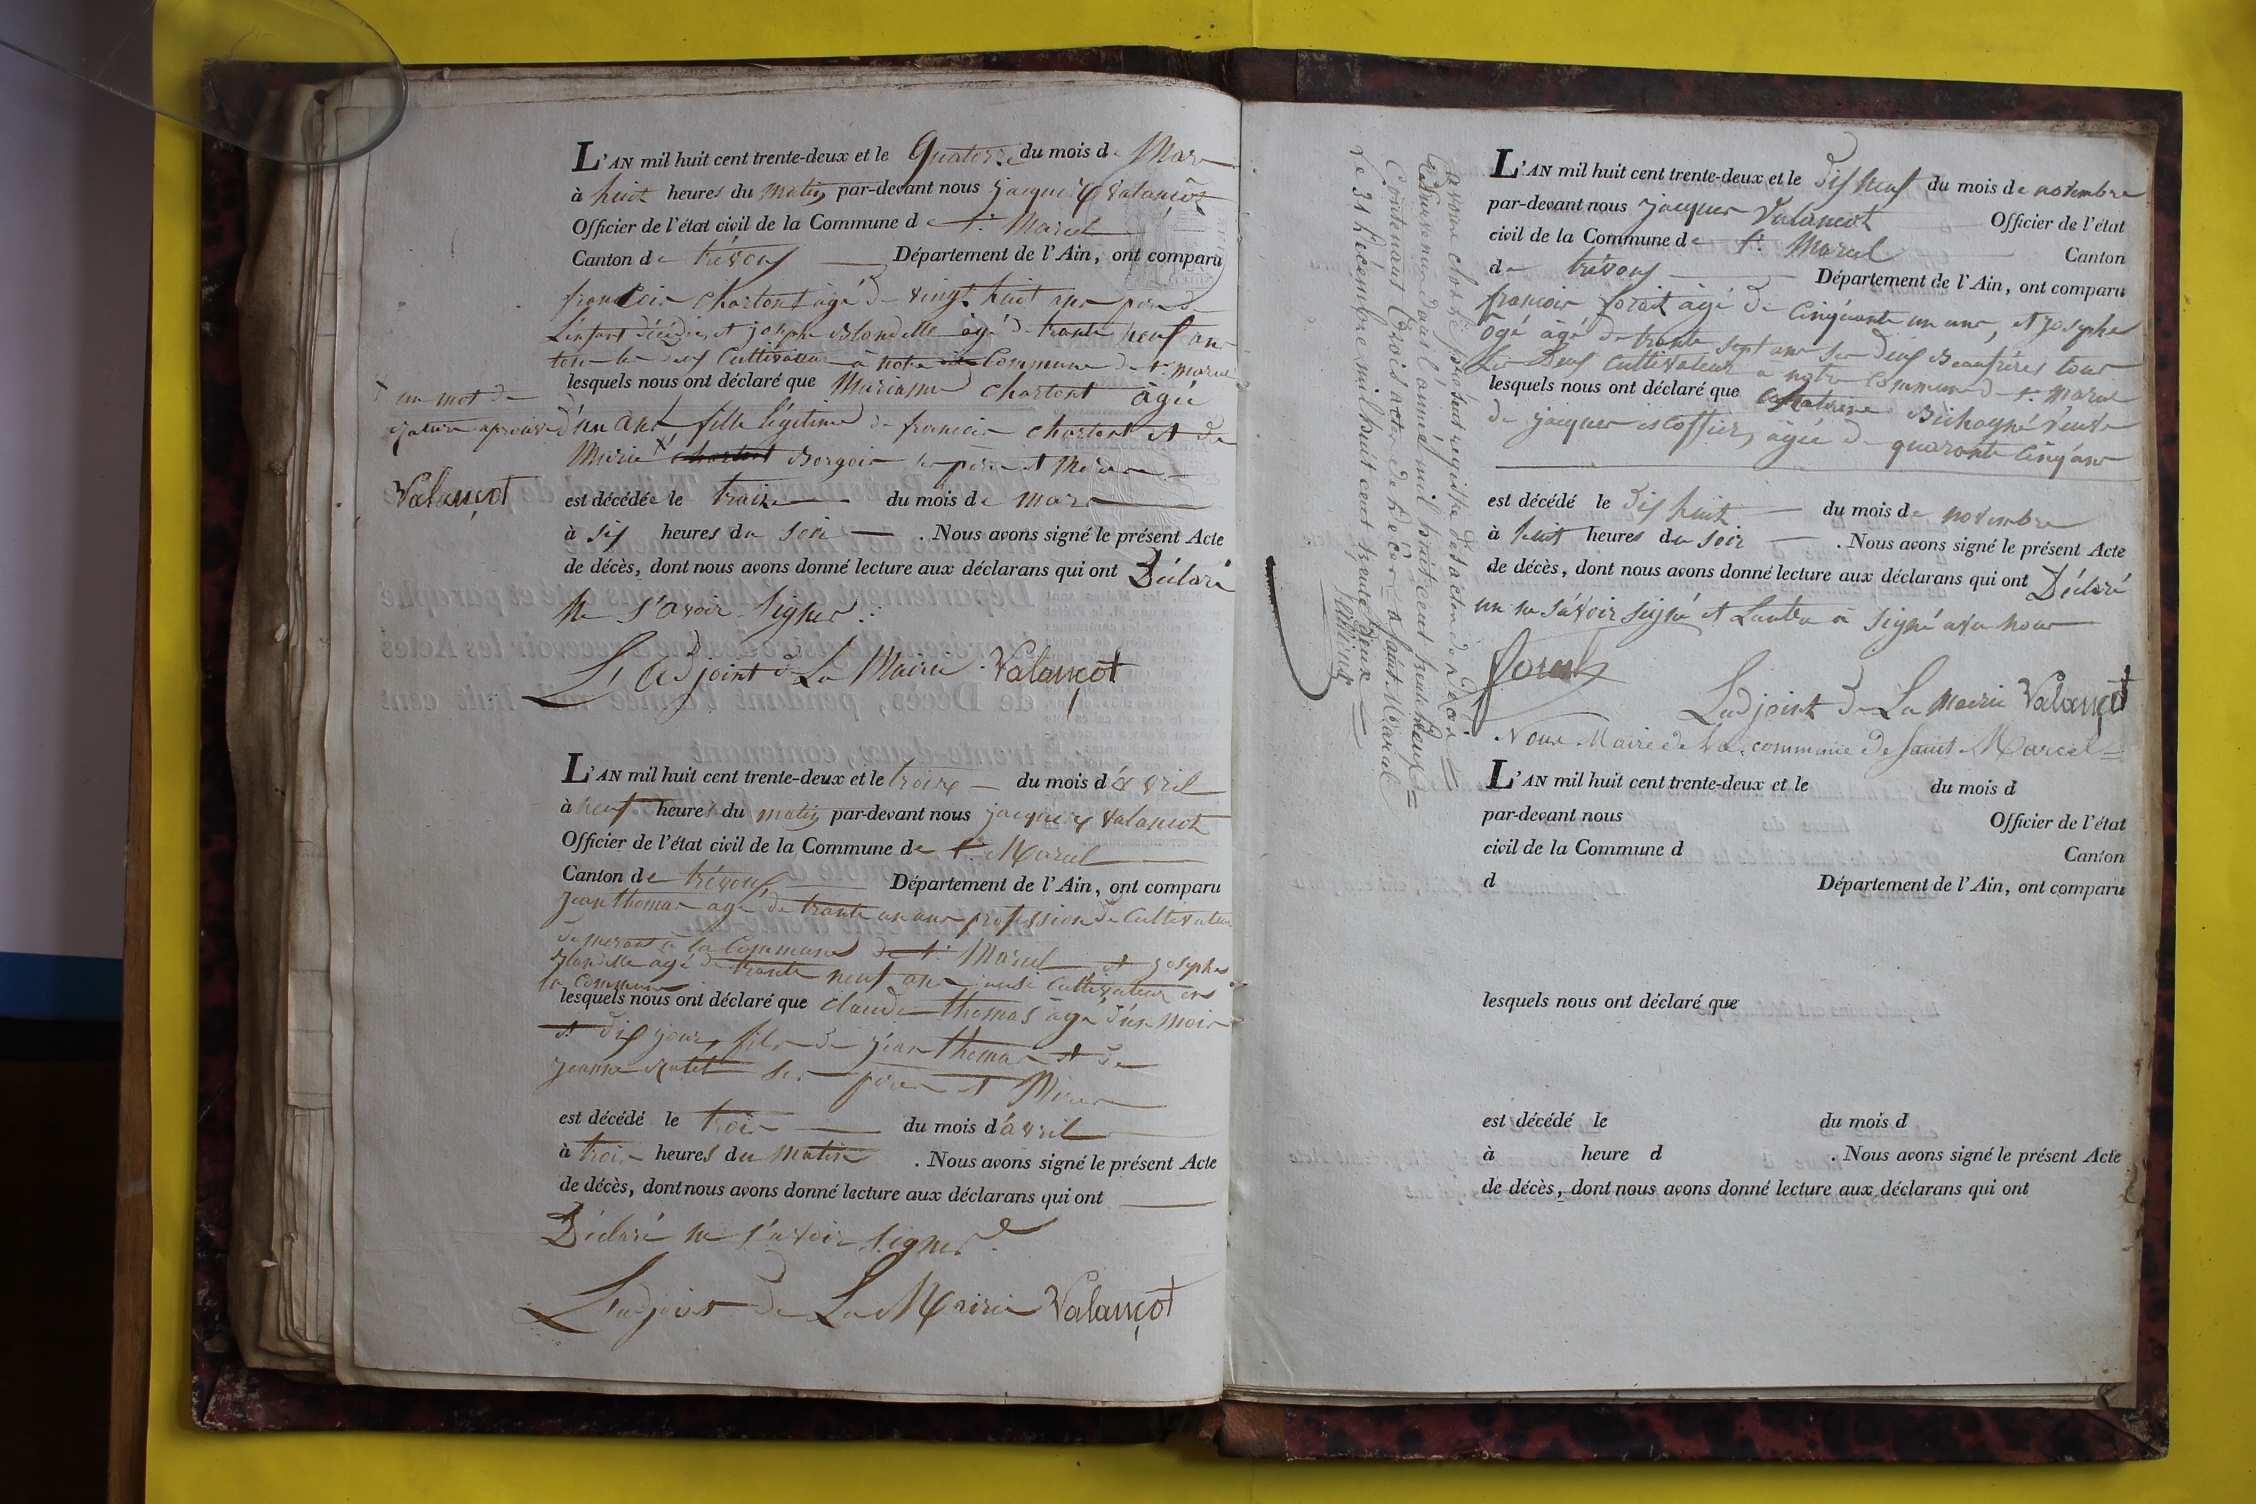 L'AN mil huit cent trente-deux et le quatorze du mois de Mars
à huit heures du matin par-devant nous jacque Valançot
Officier de l'état civil de la Commune de st. Marcel
Canton de trévoux Département de l'Ain, ont comparu
francois chartont âgé de vingt huit ans pere de
L'enfant décédée, et joseph Blondelle âgé de trante neuf ans
tous les deux Cultivateur à notre Commune de st. marcel
lesquels nous ont déclaré que Marianne chartont âgée
d'un ans fille légitime de francois chartont et de
Marie chartont Borgois ses pere et Mere
un mot de
rature aprouvé
Valançot
est décédée le traize du mois de mars
à six heures du soir . Nous avons signé le présent Acte
de décès, dont nous avons donné lecture aux déclarans qui ont Déclaré
Ne s'avoir signer
L'Adjoint de La Mairie Valançot
L'AN mil huit cent trente-deux et le trois du mois d'avril
à neuf heures du matin par-devant nous jacque Valancot
Officier de l'état civil de la Commune de st. Marcel
Canton de trévoux Département de l'Ain, ont comparu
Jean thomas agé de trante un ans profession de Cultivateur
demeront à la Commune de st. Marcel et joseph
Blondelle agé de trante neuf ans ausi Cultivateur en
la Commune
lesquels nous ont déclaré que claude thomas âgé d'un mois
et dix jours, fils de jean thomas et de
jeanne ses pere et Mere
est décédé le trois du mois d'avril
à trois heures du matin . Nous avons signé le présent Acte
de décès, dont nous avons donné lecture aux déclarans qui ont
Déclaré ne s'avoir signer
L'adjoint de La Mairie Valançot
arrêté et clos le présent registre d'actes de Décès
de l'année mil huit cent trente deux
Contenant trois actes de Décès à Saint Marcel
le 31 décembre mil huit cent trente deux
L'AN mil huit cent trente-deux et le dix neuf du mois de novembre
par-devant nous jacques Valancot Officier de l'état
civil de la Commune de st. Marcel Canton
de trévoux Département de l'Ain, ont comparu
francois forait âgé de Cinquante un ans, et joseph
Ogé agé de trante sept ans ses deux Beaufrères tous
les Deux cultivateur a notre Commune de st. Marcel
lesquels nous ont déclaré que Catherine Bichagne veuve
de jacques escoffier, âgée de quarante cinq ans
est décédé le dix huit du mois de novembre
à huit heures du soir . Nous avons signé le présent Acte
de décès, dont nous avons donné lecture aux déclarans qui ont Déclaré
un ne s'avoir signé et Lautre a signé avec nous
Ladjoint de La Mairie Valançot
Nous Maire de la commune de Saint Marcel
L'AN mil huit cent trente-deux et le du mois d
par-devant nous Officier de l'état
civil de la Commune d Canton
d Département de l'Ain, ont comparu
lesquels nous ont déclaré que
est décédé le du mois d
à heure d . Nous avons signé le présent Acte
de décès, dont nous avons donné lecture aux déclarans qui ont